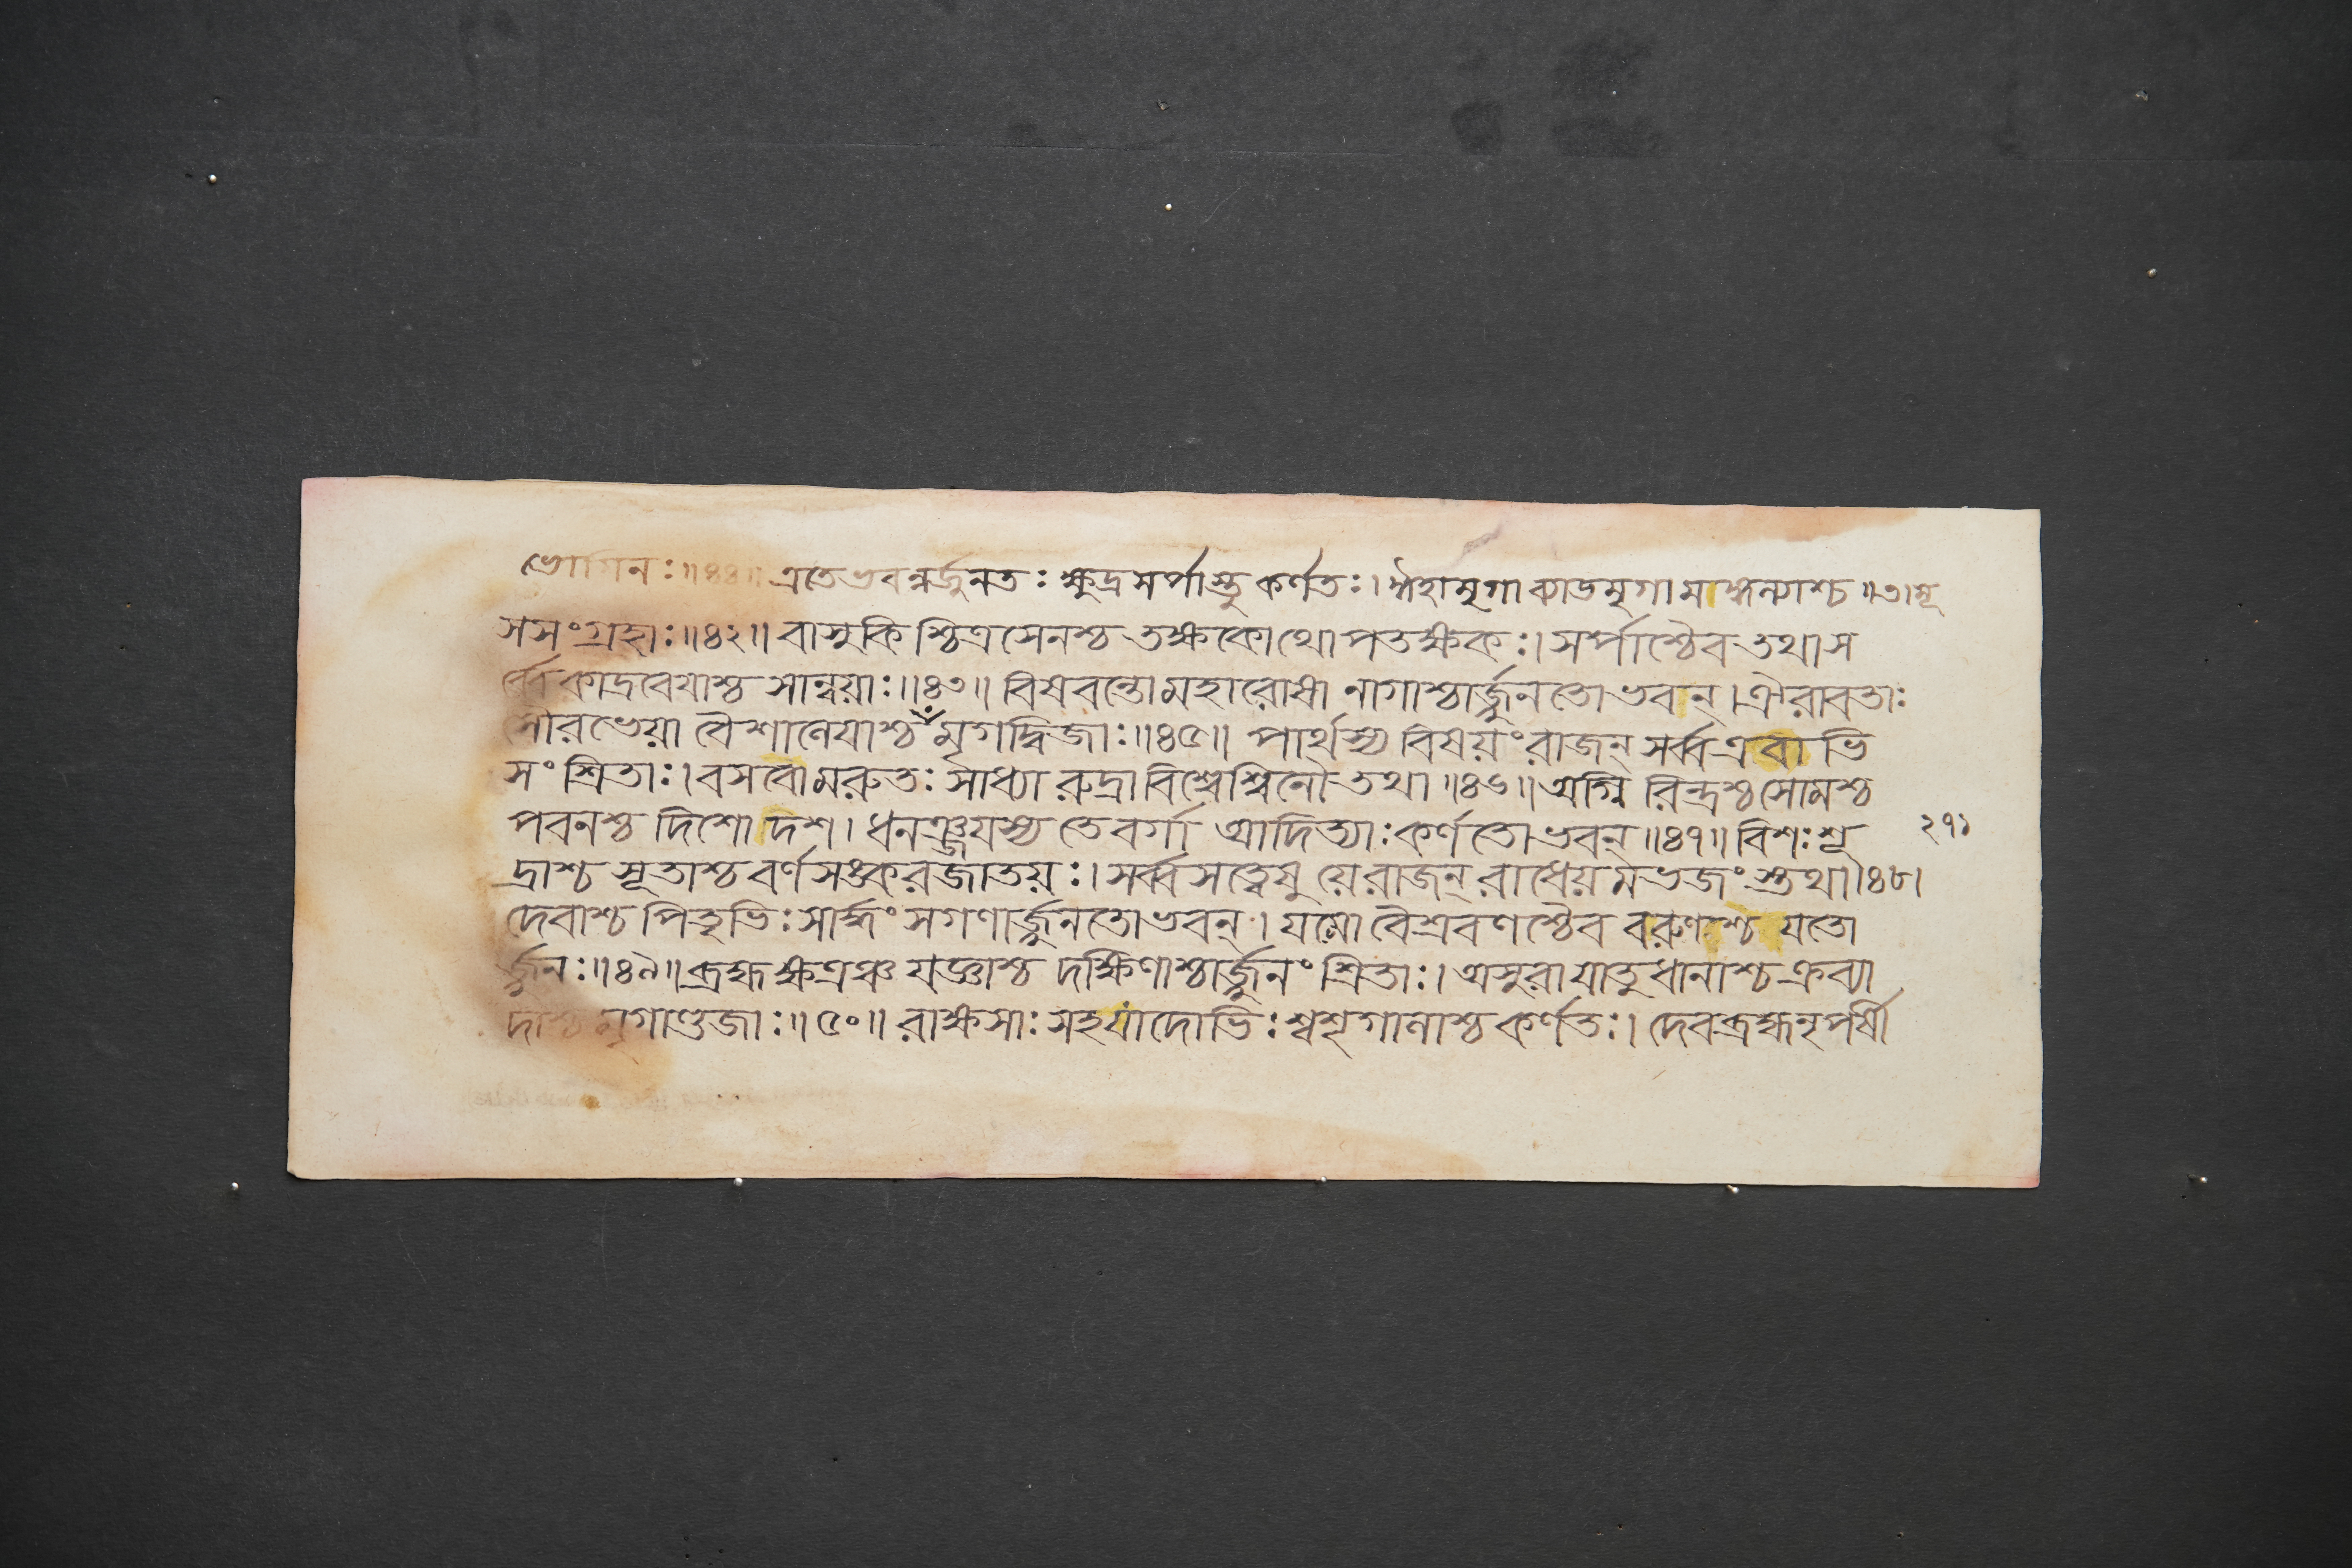 ভোগিনঃ॥৪৪॥ এতেভবন্নর্জুনতঃ ক্ষুদ্রসর্পাস্তু কর্ণতঃ। ঈহামৃগা ব্যাডমৃগা মাঙ্গল্যাশ্চ ॥৩। মৃ
সসংগ্রহাঃ॥৪২॥ বাসুকিশ্চিত্রসেনশ্চ তক্ষকোথোপতক্ষকঃ। সর্পাশ্চৈব তথা স
র্ব্বে কাদ্রবেযাশ্চ সান্বয়াঃ॥৪৩॥ বিষবন্তো মহারোষা নাগাশ্চার্জ্জুনতোভবন্। ঐরাবতাঃ
সৌরভেয়া বৈশালেযাশ্চ মৃগদ্বিজাঃ॥৪৫॥ পার্থস্য বিষয়ং রাজন্ সর্ব্ব এবাভি
সংশ্রিতাঃ। বসবো মরুতঃ সাধ্যা রুদ্রা বিশ্বেশ্বিনৌ তথা ॥৪৬॥ অগ্নিরিন্দ্রশ্চ সোমশ্চ
পবনশ্চ দিশো দশ। ধনঞ্জযস্য তে বর্গা আদিত্যাঃ কর্ণতোভবন্॥৪৭॥ বিশঃ শূ
২৭১
দ্রাশ্চ সূতাশ্চ বর্ণসঙ্করজাতয়ঃ। সর্ব্বসত্বেষু য়ে রাজন্ রাধেয়মভজংস্তথা।৪৮।
দেবাশ্চ পিতৃভিঃ সার্দ্ধং সগণার্জ্জুনতোভবন্। যমো বৈশ্রবণশ্চৈব বরুণশ্চ যতো
র্জ্জুনঃ॥৪৯॥ ব্রহ্মক্ষত্রঞ্চ যজ্ঞাশ্চ দক্ষিণাশ্চার্জ্জুনং শ্রিতাঃ। অসুরা যাতুধানাশ্চ ক্রব্যা
দাশ্চ মৃগাণ্ডজাঃ॥৫০॥ রাক্ষসাঃ সহ যাদোভিঃ শ্বশৃগানাশ্চ কর্ণতঃ। দেবব্রহ্মনৃপর্ষী